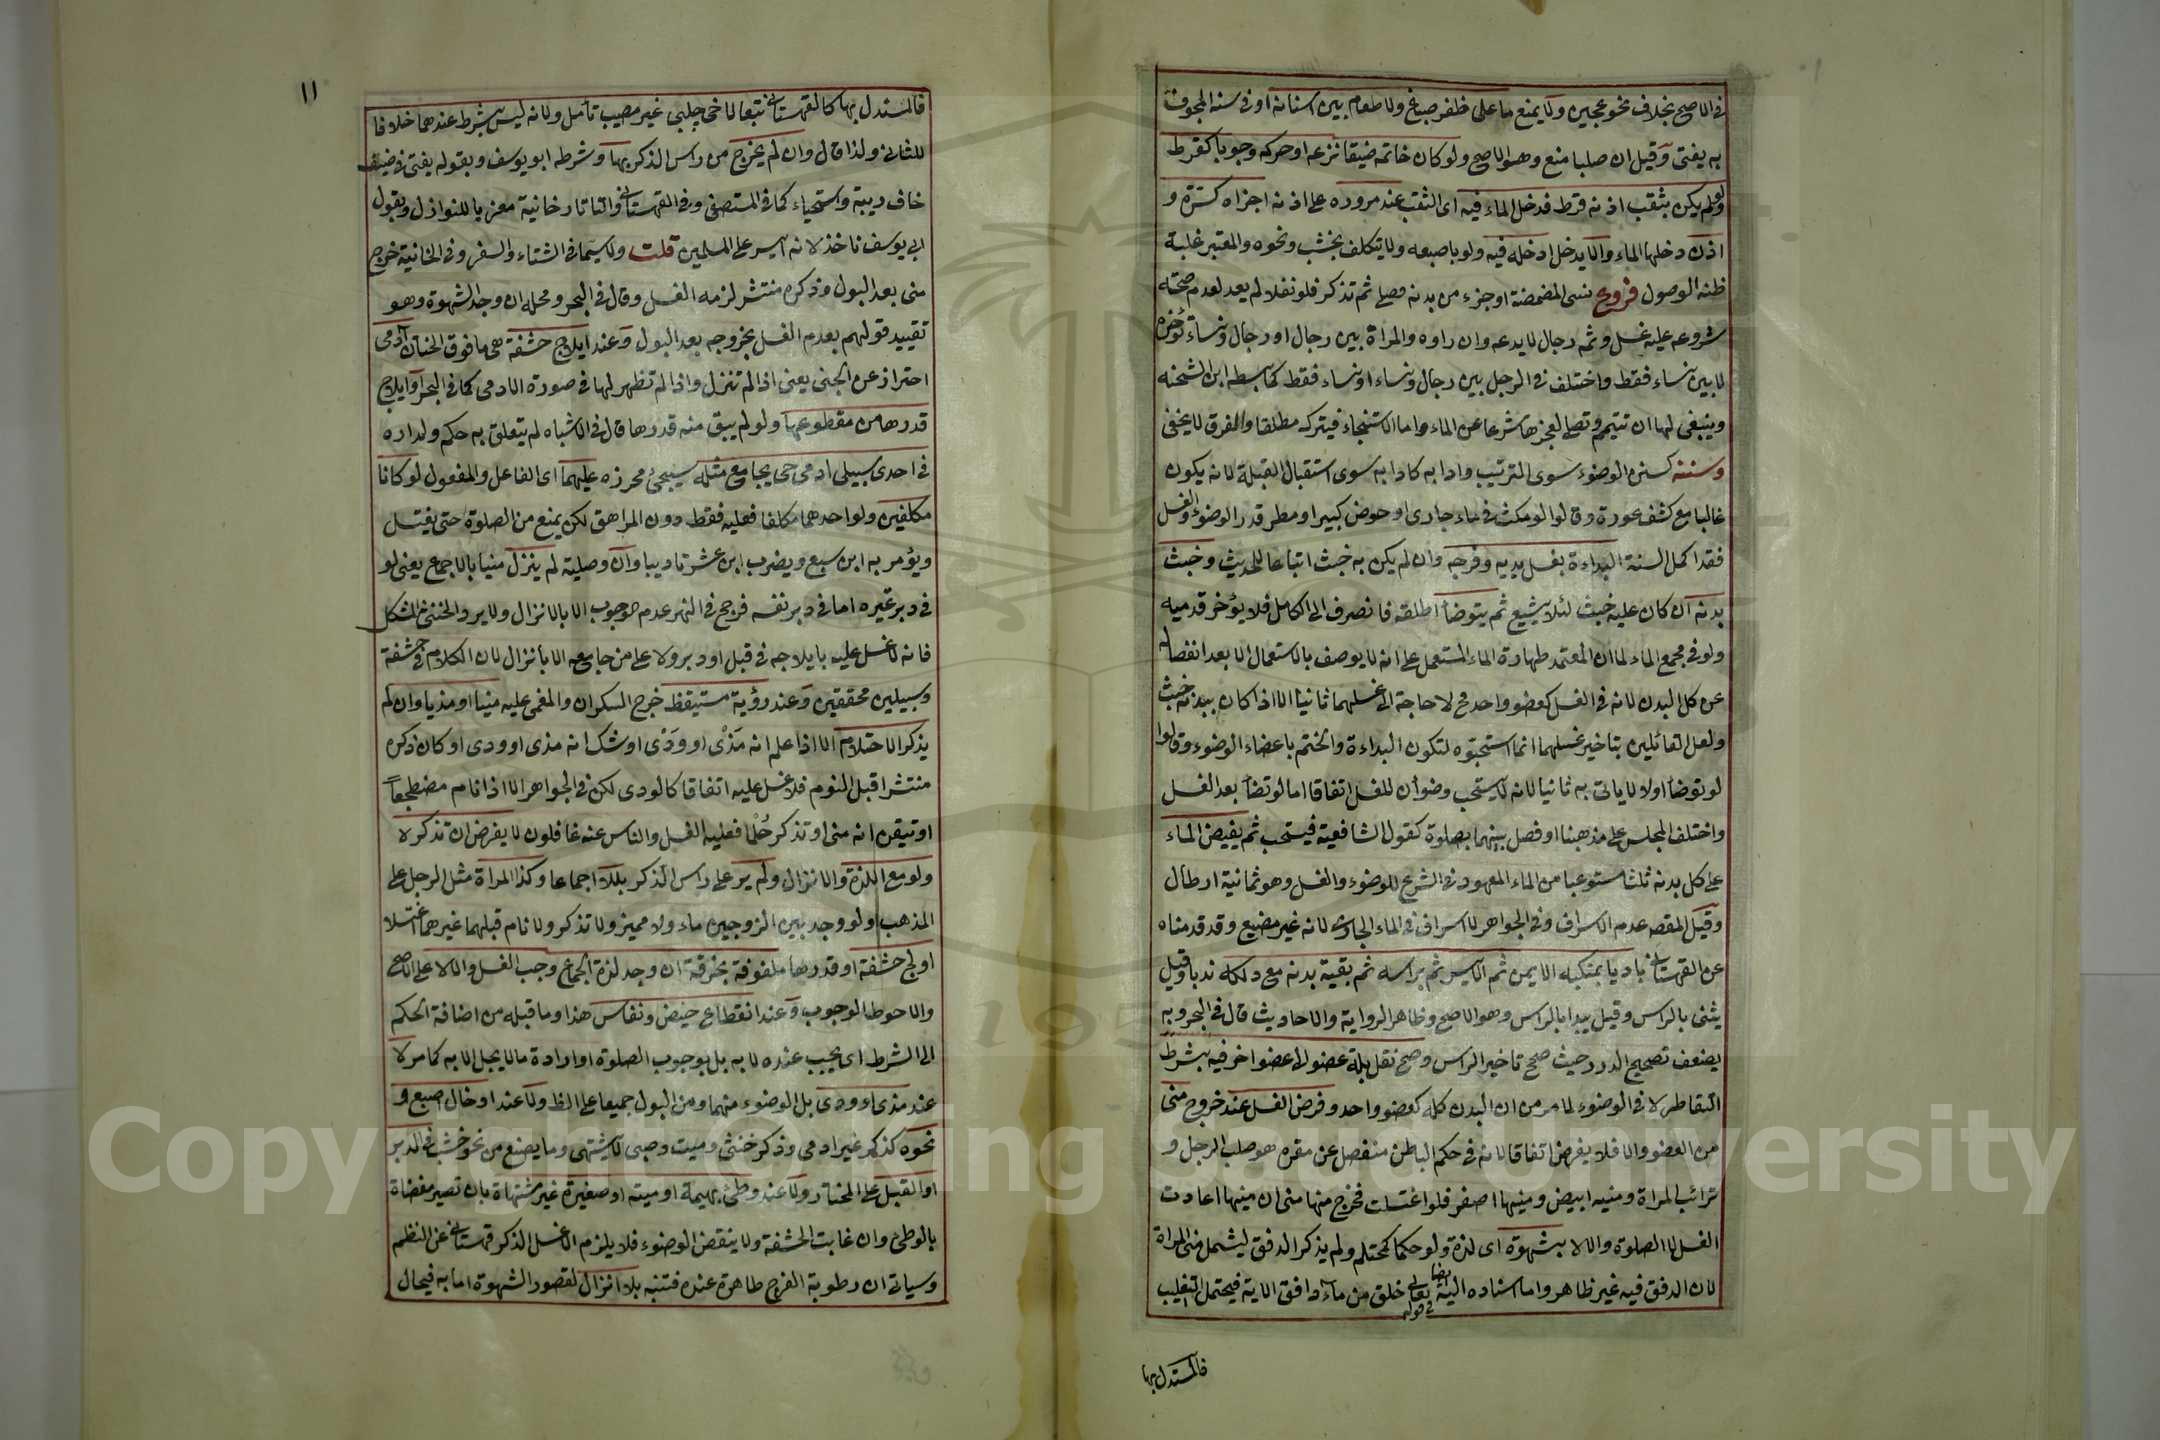 في الاصح بخلاف نحو عجين ولا يمنع ما على ظفر صباغ ولا طعام بين اسنانه او في سنه المجوف
به يفتى وقيل ان صلبا منع وهو الاصح ولو كان خاتمه ضيقا نزعه او حركه وجوبا كقرط
ولو لم يكن بثقب اذنه قرط فدخل الماء فيه اى الثقب عند مروره على اذنه اجزاه كسرة و
اذن دخلها الماء والا يدخل ادخله فيه ولو باصبعه ولا يتكلف بخشب ونحوه والمعتبر غلبة
ظنه الوصول فروع نسى المضمضة او جزء من بدنه فصلى ثم تذكر فلو نفلا لم يعد لعدم صحته
شروعه عليه غسل وثمه رجال لا يدعه وان راوه والمراة بين رجال او رجال ونساء تؤخره
لا بين نساء فقط واختلف فى الرجل بين رجال ونساء او نساء فقط كما بسطه ابن الشحنه
وينبغى لها ان تتيمم وتصلى لعجزها شرعا عن الماء واما الاستنجاء فيترك مطلقا والفرق لا يخفى
وسننه كسنن الوضوء سوى الترتيب وادابه كادابه سوى استقبال القبلة لانه يكون
غالبا مع كشف عورة وقالوا لو مكث فى ماء جارى او حوض كبير او مطر قدر الوضوء والغسل
فقد اكمل السنة البداءة بغسل يديه وفرجه وان لم يكن به خبث اتباعا للحديث وخبث
بدنه ان كان عليه خبث لئلا يشيع ثم يتوضأ اطلقه فانصرف الى الكامل فلا يؤخر قدميه
ولو فى مجمع الماء لما ان المعتمد طهارة الماء المستعمل على انه لا يوصف بالاستعمال الا بعد انفصاله
عن كل البدن لانه فى الغسل كعضو واحد فح لا حاجة الى غسلهما ثانيا الا اذا كان ببدنه خبث
ولعل القائلين بتاخير غسلهما انما استحبوه لتكون البداءة والختم باعضاء الوضوء وقالوا
لو توضأ اولا لا ياتى به ثانيا لانه لا يستحب وضوأن للغسل اتفاقا اما لو توضأ بعد الغسل
واختلف المجلس على مذهبنا او فصل بينهما بصلوة كقول الشافعية فيستحب ثم يفيض الماء
على كل بدنه ثلثا مستوعبا من الماء المعهود فى الشرع للوضوء والغسل وهو ثمانية ارطال
وقيل المقصد عدم الاسراف وفى الجواهر لا اسراف فى الماء الجارى لانه غير مضيع وقد قدمناه
عن القهستانى باديا بمنكبه الايمن ثم الايسر ثم براسه ثم بقية بدنه مع دلكه ندبا وقيل
يثنى بالراس وقيل يبدا بالراس وهو الاصح وظاهر الرواية والاحاديث قال فى البحر وبه
يضعف تصحيح الدرر حيث صحح تاخير الراس وصح نقل بلة عضو الى عضو اخر فيه بشرط
التقاطر لا فى الوضوء لما مر من ان البدن كله كعضو واحد وفرض الغسل عند خروج منى
من العضو والا فلا يفرض اتفاقا لانه فى حكم الباطن منفصل عن مقره هو صلب الرجل و
ترائب المراة ومنيه ابيض ومنيها اصفر فلو اغتسلت فخرج منها منى ان منيها اعادت
الغسل لا الصلوة والا لا بشهوة اى لذة ولو حكما كمحتلم ولم يذكر الدفق ليشمل منى المراة
لان الدفق فيه غير ظاهر واما اسناده اليه ايضا فى قوله تعالى خلق من ماء دافق الاية فيحتمل التغليب
فالمستدل بها
١١
فالمستدل بها كالقهستانى تبعا لاخى چلبى غير مصيب تأمل ولانه ليس بشرط عندهما خلافا
للثانى ولذا قال وان لم يخرج من راس الذكر بها وشرطه ابو يوسف وبقوله يفتى فى ضيف
خاف ريبة واستحياء كما فى المستصفى وفى القهستانى والتاتارخانية معزيا للنوازل وبقول
ابى يوسف ناخذ لانه ايسر على المسلمين قلت ولا سيما فى الشتاء والسفر وفى الخانية خرج
منى بعد البول وذكره منتشر لزمه الغسل وقال فى البحر ومحله ان وجد الشهوة وهو
تقييد قولهم بعدم الغسل بخروجه بعد البول وعند ايلاج حشفة هى ما فوق الختان آدمى
احتراز عن الجنى يعنى اذا لم تنزل واذا لم تظهر لها فى صورة الادمى كما فى البحر او ايلاج
قدرها من مقطوعها ولو لم يبق منه قدرها قال فى الاشباه لم يتعلق به حكم ولم اره
فى احدى سبيلى ادمى حى يجامع مثله سيجئ محرزه عليهما اى الفاعل والمفعول لو كانا
مكلفين ولو احدهما مكلفا فعليه فقط دون المراهق لكن يمنع من الصلوة حتى يغتسل
ويؤمر به ابن سبع ويضرب ابن عشر تاديبا وان وصلية لم ينزل منيا بالاجماع يعنى لو
فى دبر غيره اما فى دبر نفسه فرجح فى النهر عدم الوجوب الا بالانزال ولا يرد الخنثى المشكل
فانه لا غسل عليه بايلاجه فى قبل او دبر ولا على من جامعه الا بانزال لان الكلام فى حشفة
وسبيلين محققين وعند رؤية مستيقظ خرج السكران والمغمى عليه منيا او مذيا وان لم
يذكر الاحتلام الا اذا علم انه مذى او ودى او شك انه مذى او ودى او كان ذكره
منتشرا قبل النوم فلا غسل عليه اتفاقا كالودى لكن فى الجواهر الا اذا نام مضطجعا
او تيقن انه منى او تذكر حلما فعليه الغسل والناس عنه غافلون لا يفرض ان تذكر لا
ولو مع اللذة والانزال ولم ير على راس الذكر بللا اجماعا وكذا المراة مثل الرجل على
المذهب ولو وجد بين الزوجين ماء ولا مميز ولا تذكر ولا نام قبلهما غيرهما اغتسلا
اولج حشفة او قدرها ملفوفة بخرقة ان وجد لذة الجماع وجب الغسل والا لا على الاصح
والاحوط الوجوب وعند انقطاع حيض ونفاس هذا وما قبله من اضافة الحكم
الى الشرط اى يجب عنده لا به بل بوجوب الصلوة او ارادة ما لا يحل الا به كما مر لا
عند مذى او ودى بل الوضوء منهما ومن البول جميعا على الظ ولا عند ادخال اصبع و
نحوه كذكر غير ادمى وذكر خنثى وميت وصبى لا يشتهى وما يصنع من نحو خشب فى الدبر
او القبل على المختار ولا عند وطئ بهيمة او ميته او صغيرة غير مشتهاة بان تصير مفضاة
بالوطئ وان غابت الحشفة ولا ينقض الوضوء فلا يلزم الا غسل الذكر قهستانى عن النظم
وسياتى ان رطوبة الفرج طاهرة عنده فتنبه بلا انزال لقصور الشهوة اما به فيحال
Copyright © King Saud University
195